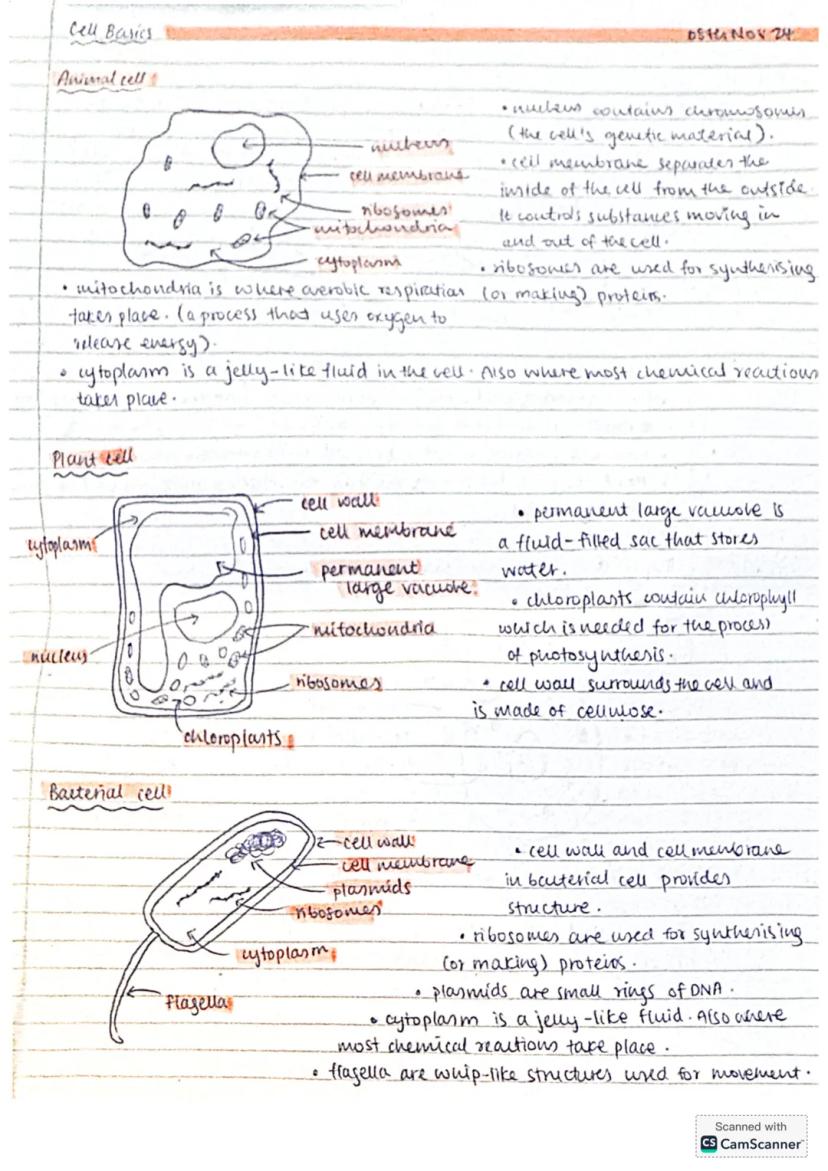 Cell Basics
05th Nov 24
Animal cell
nucleus
cell membrane
ribosomes
mitochondria
cytoplasm
• nucleus contains chromosomes
(the cell's genetic material).
• cell membrane separates the
inside of the cell from the outside.
It controls substances moving in
and out of the cell.
• ribosomes are used for synthesising
(or making) proteins.
• mitochondria is where aerobic respiration
takes place. (a process that uses oxygen to
release energy).
• cytoplasm is a jelly-like fluid in the cell. Also where most chemical reactions
takes place.
Plant cell
cell wall
cytoplasm
cell membrane
permanent
large vacuole
mitochondria
nucleus
ribosomes
chloroplasts
• permanent large vacuole is
a fluid-filled sac that stores
water.
• chloroplasts contain chlorophyll
which is needed for the process
of photosynthesis.
• cell wall surrounds the cell and
is made of cellulose.
Bacterial cell
cell wall
cell membrane
plasmids
ribosomes
cytoplasm
flagella
• cell wall and cell membrane
in bacterial cell provides
structure.
• ribosomes are used for synthesising
(or making) proteins.
• plasmids are small rings of DNA.
• cytoplasm is a jelly-like fluid. Also where
most chemical reactions take place.
• flagella are whip-like structures used for movement.
Scanned with
CS CamScanner